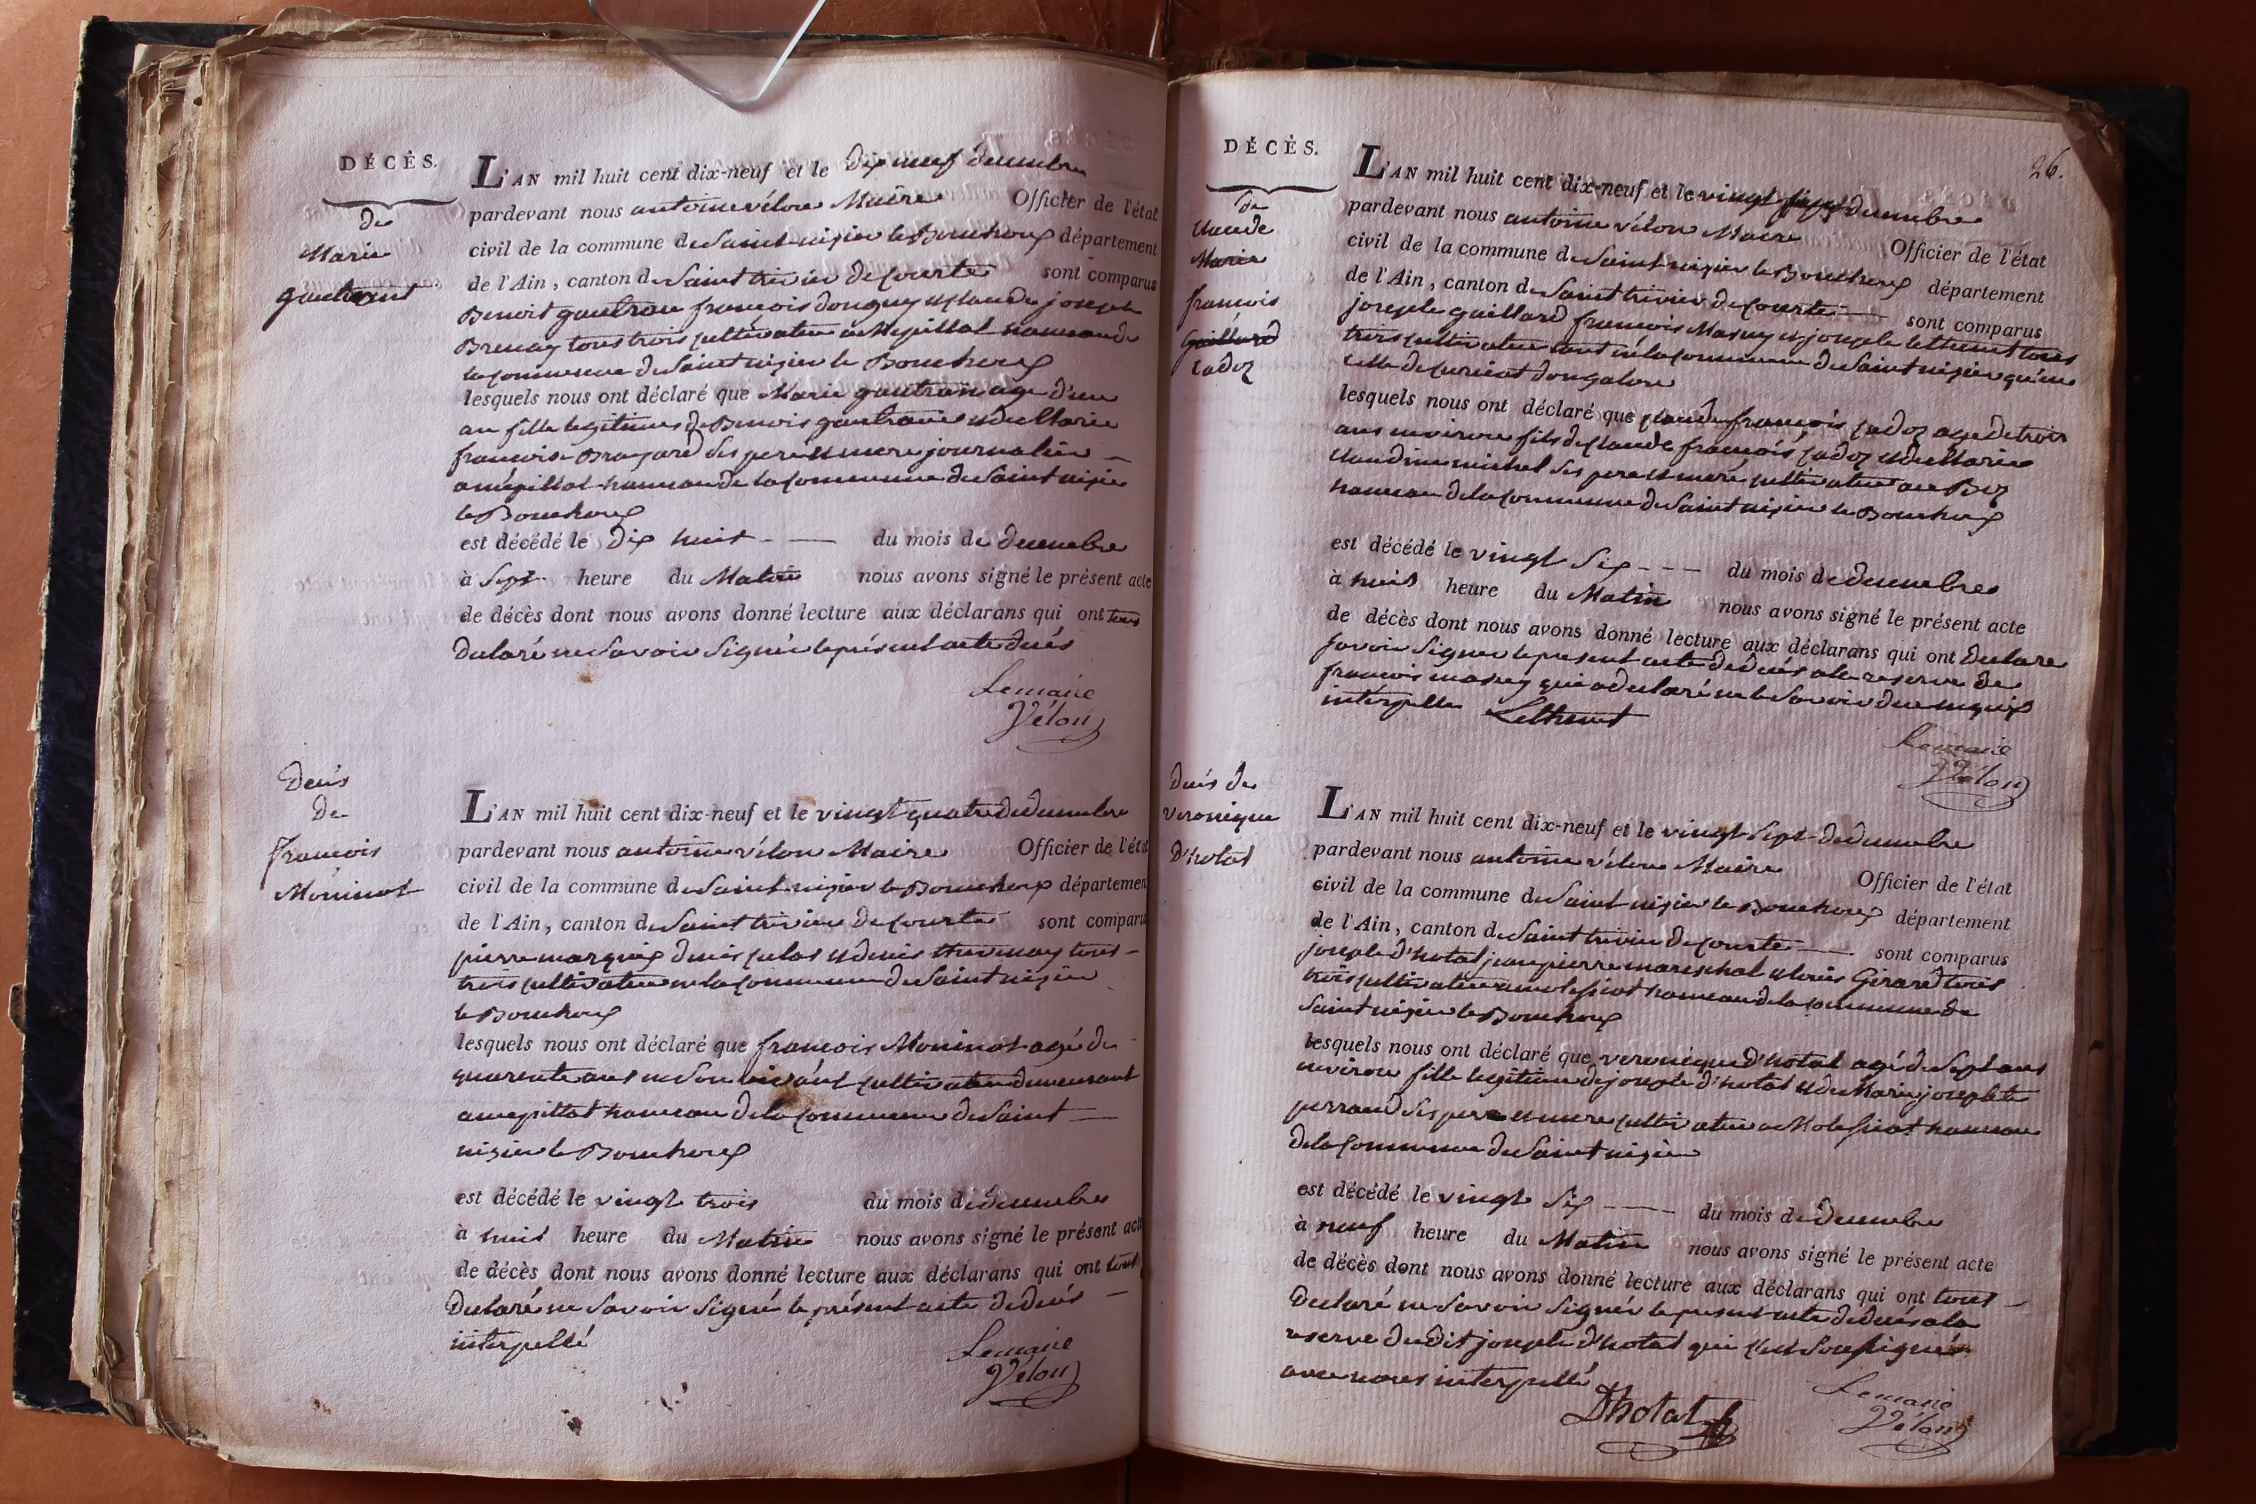 DÉCÈS.
de
Marie
gautrand
L'AN mil huit cent dix-neuf et le Dix neuf decembre
pardevant nous antoine vélon Maire Officier de l'état
civil de la commune de Saint nizier le Bouchoux département
de l'Ain, canton de Saint trivier de courte sont comparus
Benoit gautran françois donguy et claude joseph
Brenay tous trois cultivateur a Mepillat hameau de
la commune de Saint nizier le Bouchoux
lesquels nous ont déclaré que Marie gautran age d'un
an fille legitime de Benoit gautran et de Marie
francoise Brayard ses pere et mere journalier
a mépillat hameau de la commune de Saint nizier
le Bouchoux
est décédé le Dix huit du mois de decembre
à Sept heure du Matin nous avons signé le présent acte
de décès dont nous avons donné lecture aux déclarans qui ont tous
declaré ne Savoir Signér le présent acte decés
Lemaire
Vélon
Decés
De
François
Moninot
L'AN mil huit cent dix-neuf et le vingt quatre de decembre
pardevant nous antoine vélon Maire Officier de l'état
civil de la commune de Saint nizier le Bouchoux département
de l'Ain, canton de Saint trivier de courte sont comparus
pierre marquis denis culas et denis thevenay tous
trois cultivateur en la commune de Saint nizier
le Bouchoux
lesquels nous ont déclaré que françois Moninot agé de
quarente ans en Son vivant cultivateur demeurant
a mepillat hameau de la commune de Saint
nizier le Bouchoux
est décédé le vingt trois du mois de decembre
à huit heure du Matin nous avons signé le présent acte
de décès dont nous avons donné lecture aux déclarans qui ont tous
declaré ne Savoir Signé le présent acte de decés
interpellé
Lemaire
Vélon
26.
DÉCÈS.
de
claude
Marie
francois
Gaillard
cadoz
L'AN mil huit cent dix-neuf et le vingt sept decembre
pardevant nous antoine vélon Maire Officier de l'état
civil de la commune de Saint nizier le Bouchoux département
de l'Ain, canton de Saint trivier de courte sont comparus
joseph gaillard francois Masuy et joseph lethenet tous
trois cultivateur tant en la commune de Saint nizier qu'en
celle de curciat dongalon
lesquels nous ont déclaré que claude françois cadoz age de trois
ans environ fils de claude françois cadoz et de Marie
claudine michel ses pere et mere cultivateur au Biz
hameau de la commune de Saint nizier le Bouchoux
est décédé le vingt Six du mois de decembre
à huit heure du Matin nous avons signé le présent acte
de décès dont nous avons donné lecture aux déclarans qui ont declare
Savoir Signer le present acte de decés a la reserve de
francois masuy qui a declaré ne le Savoir de ce enquis
interpelle Lethenet
Lemaire
Vélon
decés de
veronique
D'hotat
L'AN mil huit cent dix-neuf et le vingt Sept de decembre
pardevant nous antoine vélon Maire Officier de l'état
civil de la commune de Saint nizier le Bouchoux département
de l'Ain, canton de Saint trivier de courte sont comparus
joseph d'hotat jean pierre mareschal et louis Girard tous
trois cultivateur hameau de la commune de
Saint nizier le Bouchoux
lesquels nous ont déclaré que veronique d'hotat agé de Sept ans
environ fille legitime de joseph d'hotat et de Marie josephte
perraud ses pere et mere cultivateur a hameau
de la commune de Saint nizier
est décédé le vingt Six du mois de decembre
à neuf heure du Matin nous avons signé le présent acte
de décès dont nous avons donné lecture aux déclarans qui ont tous
declaré ne Savoir Signér le present acte de decés a la
reserve du dit joseph d'hotat qui s'est Soussigné
avec nous interpellé
Dhotat
Lemaire
Vélon